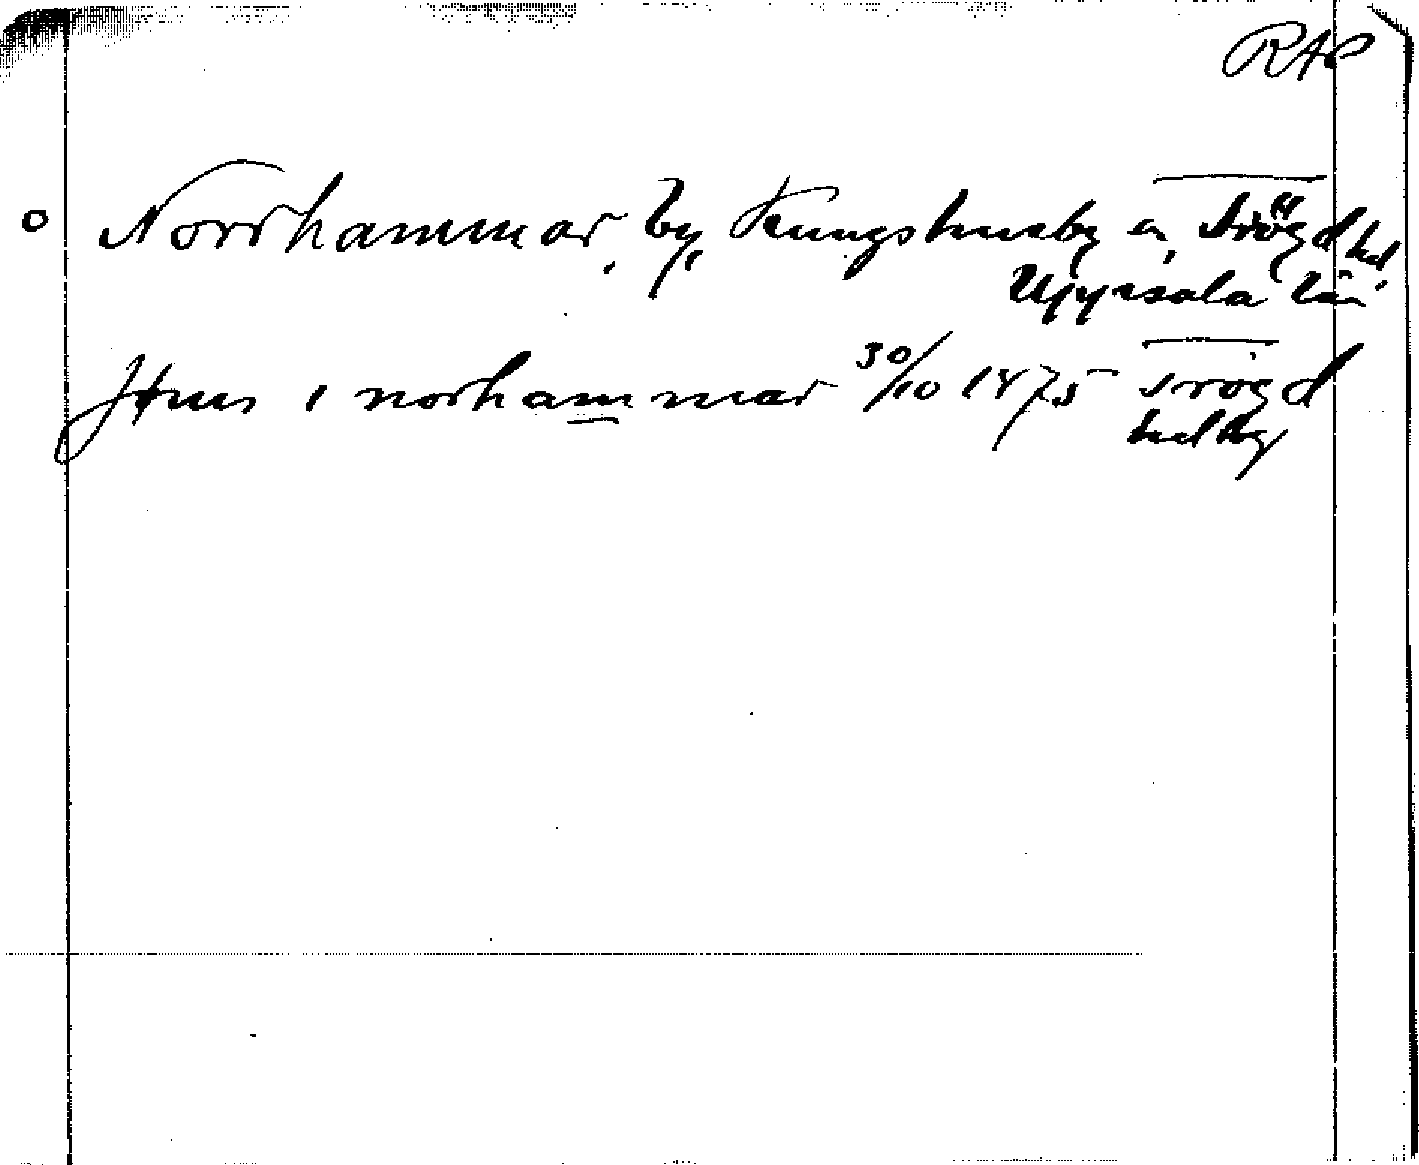 RAP
o Norrhammar, by, Kungshusby sn, Trögds hd
Uppsala län
Jtnus i norhammar 30/10 1475 Trögd